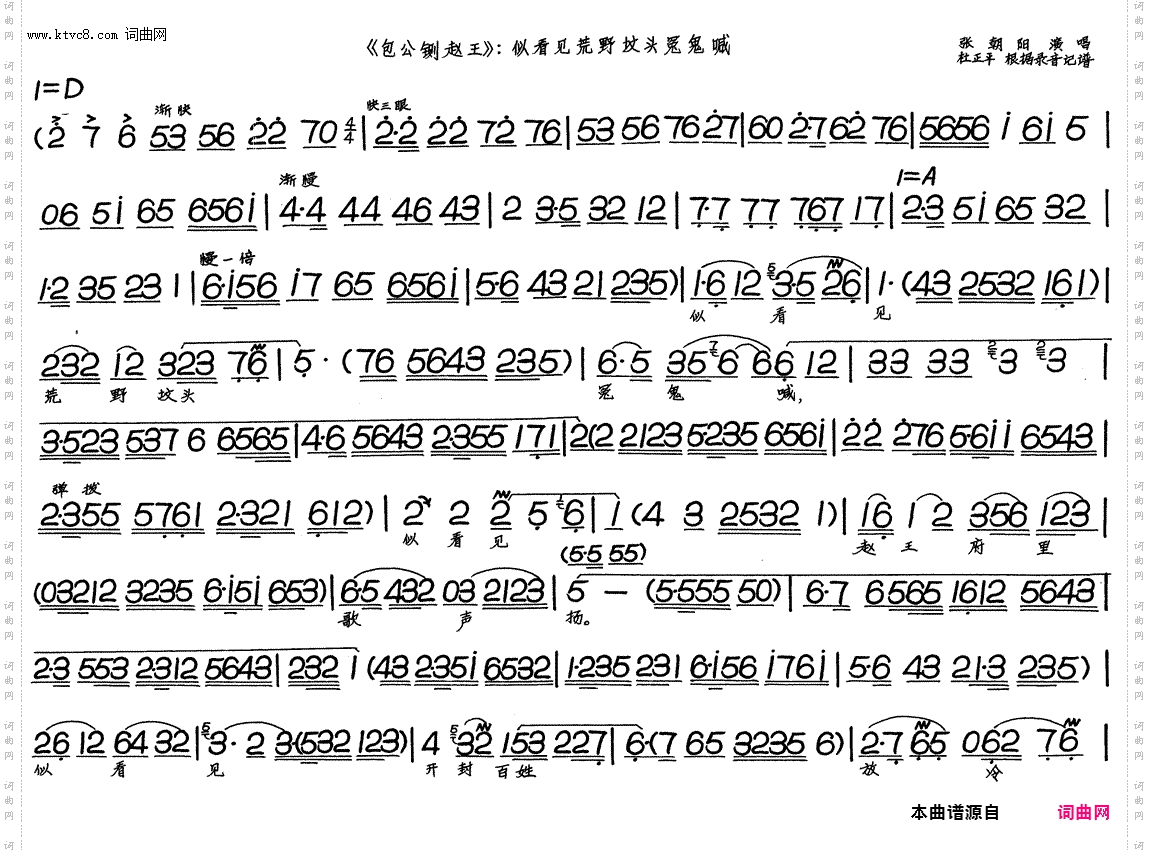 www.ktvc8.com 词曲网
《包公铡赵王》：似看见荒野坟头冤鬼喊
张朝阳演唱
杜正平 根据录音记谱
1=D
渐快 快三眼
(2 7 6 53 56 22 70 4/4 | 2·2 22 72 76 | 53 56 76 27 | 60 2·7 62 76 | 5656 1 61 5 |
渐慢 1=A
06 51 65 6561 | 4·4 44 46 43 | 2 3·5 32 12 | 7·7 77 767 17 | 2·3 51 65 32
慢一倍
1·2 35 23 1 | 6·156 17 65 6561 | 5·6 43 21 235) | 1·6 12 3·5 26 | 1·(43 2532 161) |
似 看 见
232 12 323 76 | 5·(76 5643 235) | 6·5 35 6 66 12 | 33 33 3 3 |
荒 野 坟头 冤 鬼 喊，
3·523 537 6 6565 | 4·6 5643 2·355 171 | 2(2 2123 5·235 6561 | 22 276 5·611 6543
弹拨
2·355 5761 2·321 612) | 2 2 2 5 6 | 1 (4 3 2532 1) | 16 1 2 356 123
似 看 见 赵 王 府 里
(5·5 55)
(03212 3235 6·151 653) | 6·5 432 03 2123 | 5 — (5·555 50) | 6·7 6565 1612 5643
歌 声 扬。
2·3 553 2·312 5643 | 232 1 (43 2·351 6532 | 1·235 231 6·156 1761 | 5·6 43 21·3 235)
26 12 64 32 | 3·2 3·(532 123) | 4 32 153 227 | 6·(7 65 3235 6) | 2·7 65 062 76 |
似 看 见 开封 百姓 放 冷
本曲谱源自 词曲网